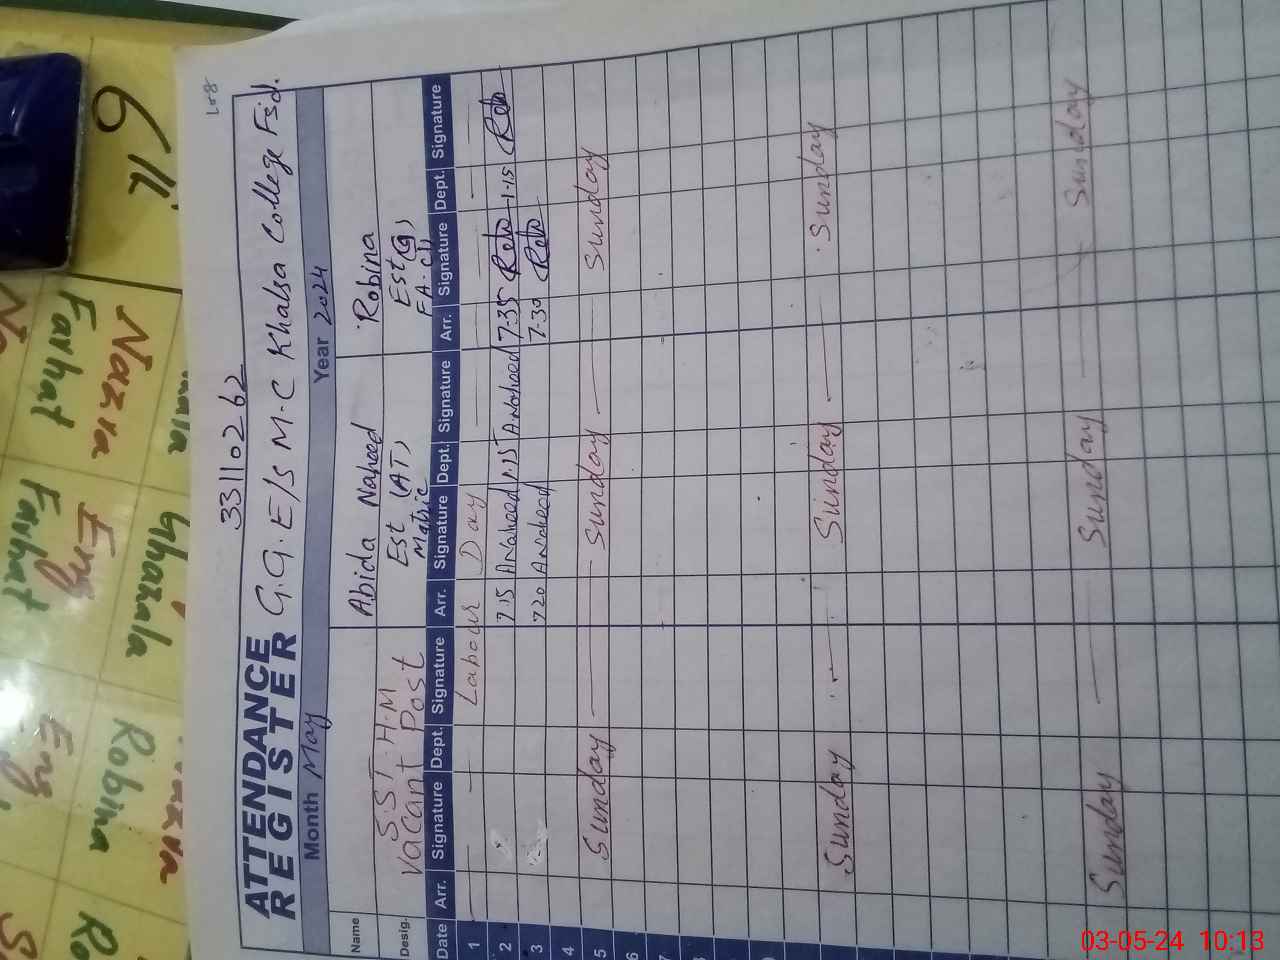 33110262
ATTENDANCE
REGISTER
G.G. E/S M.C Khalsa College Fsd.
Month May
Year 2024
Name
Abida Naheed
Robina
Desig.
S.S.T. H.M
Vacant Post
Est (AT)
Matric
Est (G)
FA.CT
Date Arr. Signature Dept. Signature Arr. Signature Dept. Signature Arr. Signature Dept. Signature
1 Labour Day
2 7.15 ANaheed 1.15 ANaheed 7.35 1.15
3 720 ANaheed 7.30
4
5 Sunday Sunday Sunday
6
7
Sunday Sunday Sunday
Sunday Sunday Sunday
611
Nazra
Farhat
Eng
Farhat
Ghazala
Robina
Eng
03-05-24 10:13